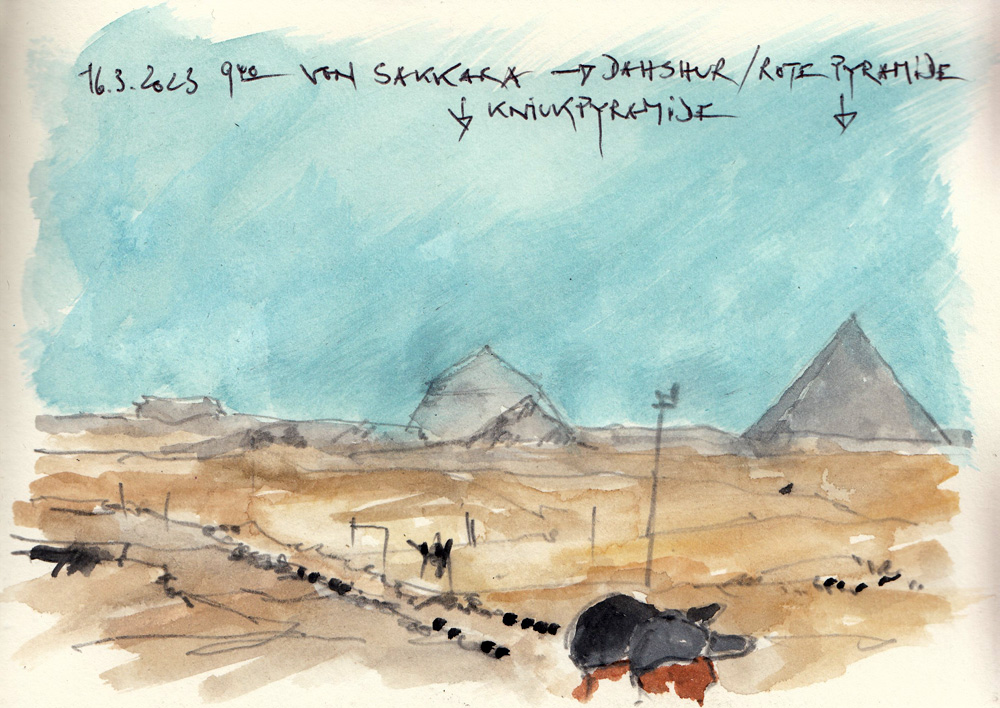 16.3.2023 940 VON SAKKARA → DAHSHUR/ROTE PYRAMIDE
↓ KNICKPYRAMIDE ↓